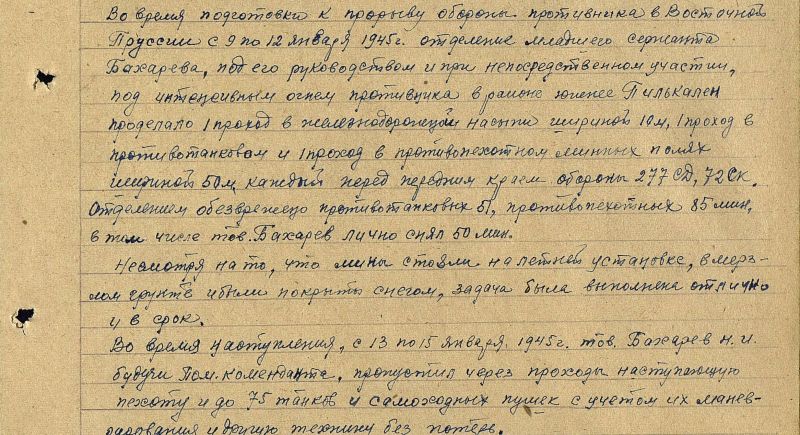 Во время подготовки к прорыву обороны противника в Восточной
Пруссии с 9 по 12 января 1945г. отделение младшего сержанта
Бахарева, под его руководством и при непосредственном участии,
под интенсивным огнем противника в районе южнее Пилькален
проделало 1 проход в железнодорожной насыпи шириной 10м, 1 проход в
противотанковом и 1 проход в противопехотном минных полях
шириной 50м, каждый перед передним краем обороны 277 СД, 72 Ск.
Отделением обезврежено противотанковых 51, противопехотных 85 мин,
в том числе тов. Бахарев лично снял 50 мин.
Несмотря на то, что мины стояли на летней установке, в мерз-
лом грунте и были покрыты снегом, задача была выполнена отлично
и в срок.
Во время наступления, с 13 по 15 января 1945г. тов. Бахарев н. и.
будучи Пом. коменданта, пропустил через проходы наступающую
пехоту и до 75 танков и самоходных пушек с учетом их манев-
рирования и другую технику без потерь.